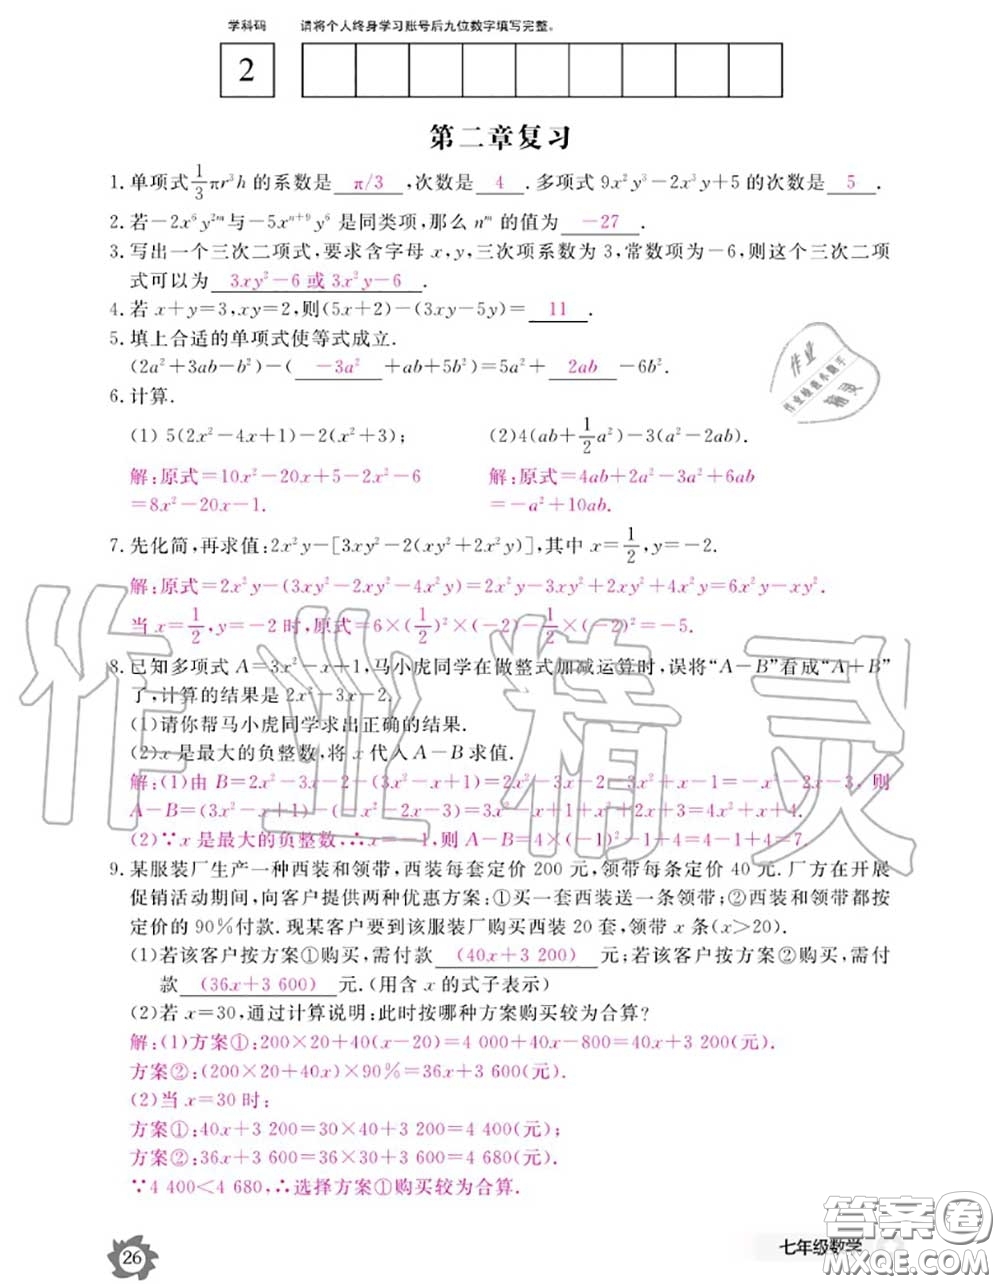 学科码 请将个人终身学习账号后九位数字填写完整。
2
第二章复习
1. 单项式1/3πr³h 的系数是 π/3 ,次数是 4 . 多项式 9x²y³-2x³y+5 的次数是 5 .
2. 若-2x⁶y²ᵐ与-5xⁿ⁺⁹y⁶ 是同类项,那么 nᵐ 的值为 -27 .
3. 写出一个三次二项式,要求含字母 x,y,三次项系数为 3,常数项为-6,则这个三次二项
式可以为 3xy²-6 或 3x²y-6 .
4. 若 x+y=3,xy=2,则(5x+2)-(3xy-5y)= 11 .
5. 填上合适的单项式使等式成立.
(2a²+3ab-b²)-( -3a² +ab+5b²)=5a²+ 2ab -6b².
6. 计算.
(1) 5(2x²-4x+1)-2(x²+3); (2)4(ab+1/2a²)-3(a²-2ab).
解:原式=10x²-20x+5-2x²-6 解:原式=4ab+2a²-3a²+6ab
=8x²-20x-1. =-a²+10ab.
7. 先化简,再求值:2x²y-[3xy²-2(xy²+2x²y)],其中 x=1/2,y=-2.
解:原式=2x²y-(3xy²-2xy²-4x²y)=2x²y-3xy²+2xy²+4x²y=6x²y-xy².
当 x=1/2,y=-2 时,原式=6×(1/2)²×(-2)-1/2×(-2)²=-5.
8. 已知多项式 A=3x²-x+1,马小虎同学在做整式加减运算时,误将“A-B”看成“A+B”
了,计算的结果是 2x²-3x-2.
(1)请你帮马小虎同学求出正确的结果.
(2)x 是最大的负整数,将 x 代入 A-B 求值.
解:(1)由 B=2x²-3x-2-(3x²-x+1)=2x²-3x-2-3x²+x-1=-x²-2x-3,则
A-B=(3x²-x+1)-(-x²-2x-3)=3x²-x+1+x²+2x+3=4x²+x+4.
(2)∵x 是最大的负整数,∴x=-1,则 A-B=4×(-1)²-1+4=4-1+4=7.
9. 某服装厂生产一种西装和领带,西装每套定价 200 元,领带每条定价 40 元. 厂方在开展
促销活动期间,向客户提供两种优惠方案:①买一套西装送一条领带;②西装和领带都按
定价的 90%付款. 现某客户要到该服装厂购买西装 20 套,领带 x 条(x>20).
(1)若该客户按方案①购买,需付款 (40x+3 200) 元;若该客户按方案②购买,需付
款 (36x+3 600) 元.(用含 x 的式子表示)
(2)若 x=30,通过计算说明:此时按哪种方案购买较为合算?
解:(1)方案①:200×20+40(x-20)=4 000+40x-800=40x+3 200(元).
方案②:(200×20+40x)×90%=36x+3 600(元).
(2)当 x=30 时:
方案①:40x+3 200=30×40+3 200=4 400(元);
方案②:36x+3 600=36×30+3 600=4 680(元).
∵4 400<4 680,∴选择方案①购买较为合算.
26
七年级数学
作业精灵
作业
作业检查小助手
精灵
答案圈
MXQE.COM